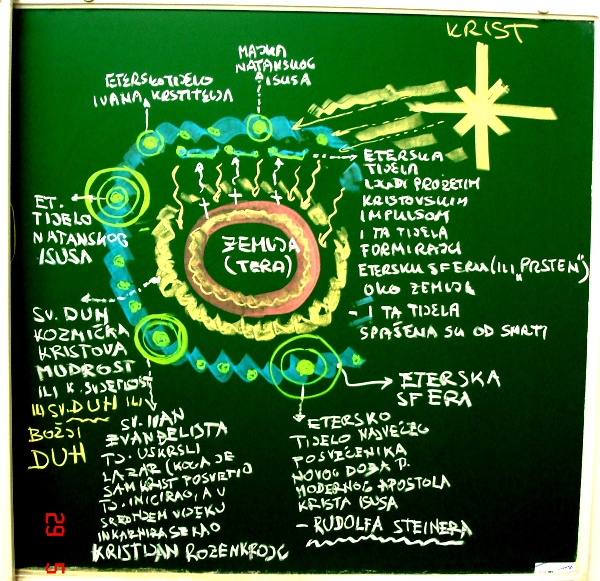 KRIST
MAJKA
NATANSKOG
ISUSA
ETERSKO TIJELO
IVANA KRSTITELJA
ETERSKA
TIJELA
LJUDI PROŽETIH
KRISTOVSKIM
IMPULSOM
I TA TIJELA
FORMIRAJU
ETERSKU SFERU (ILI „PRSTEN")
OKO ZEMLJE
- I TA TIJELA
SPAŠENA SU OD SMRTI
ET.
TIJELO
NATANSKOG
ISUSA
ZEMLJA
(TERA)
SV. DUH
KOZMIČKA
KRISTOVA
MUDROST
ILI K. SVJETLOST
ILI SV. DUH ILI
BOŽJI
DUH
ETERSKA
SFERA
SV. IVAN
EVANĐELISTA
TJ. USKRSLI
LAZAR (KOGA JE
SAM KRIST POSVETIO
TJ. INICIRAO, A U
SREDNJEM VIJEKU
INKARNIRA SE KAO
KRISTIJAN ROZENKROJC
ETERSKO
TIJELO NAJVEĆEG
POSVEĆENIKA
NOVOG DOBA TJ.
MODERNOG APOSTOLA
KRISTA ISUSA
- RUDOLFA STEINERA
29 5